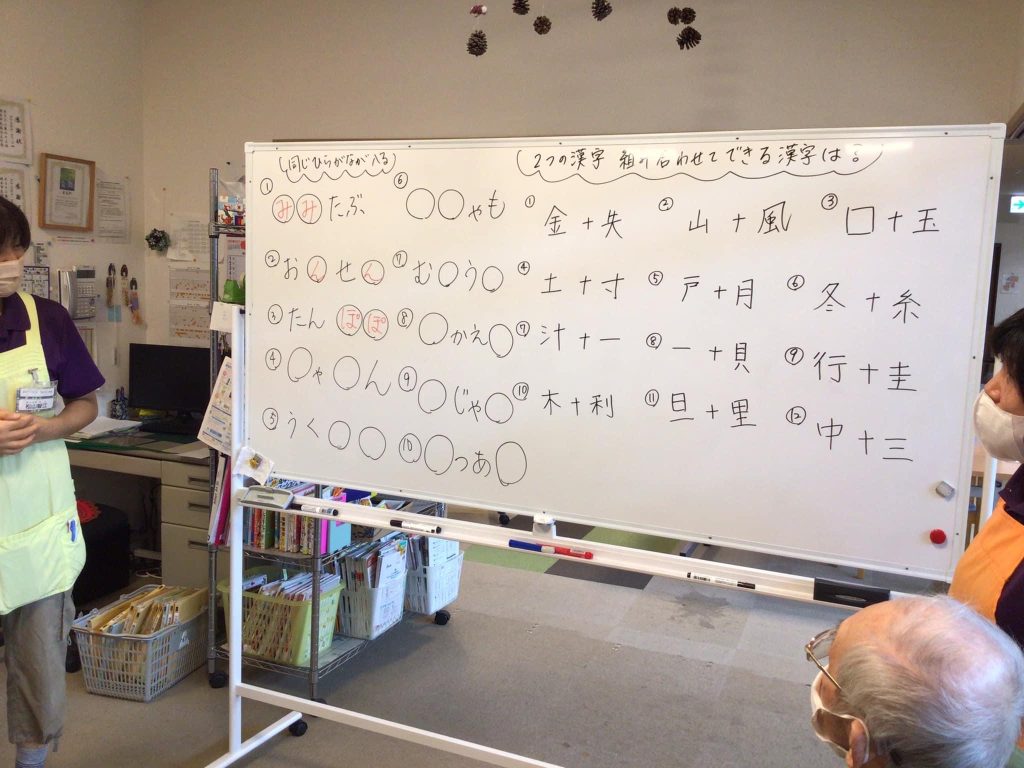 同じひらがなが入る
① みみたぶ
② おんせん
③ たんぽぽ
④ ○ゃ○ん
⑤ うく○○
⑥ ○○ゃも
⑦ む○う○
⑧ ○かえ○
⑨ ○じゃ○
⑩ ○つあ○
2つの漢字 組み合わせてできる漢字は?
① 金+失
② 山+風
③ 口+玉
④ 土+寸
⑤ 戸+月
⑥ 冬+糸
⑦ 汁+一
⑧ 一+貝
⑨ 行+圭
⑩ 木+利
⑪ 旦+里
⑫ 中+三